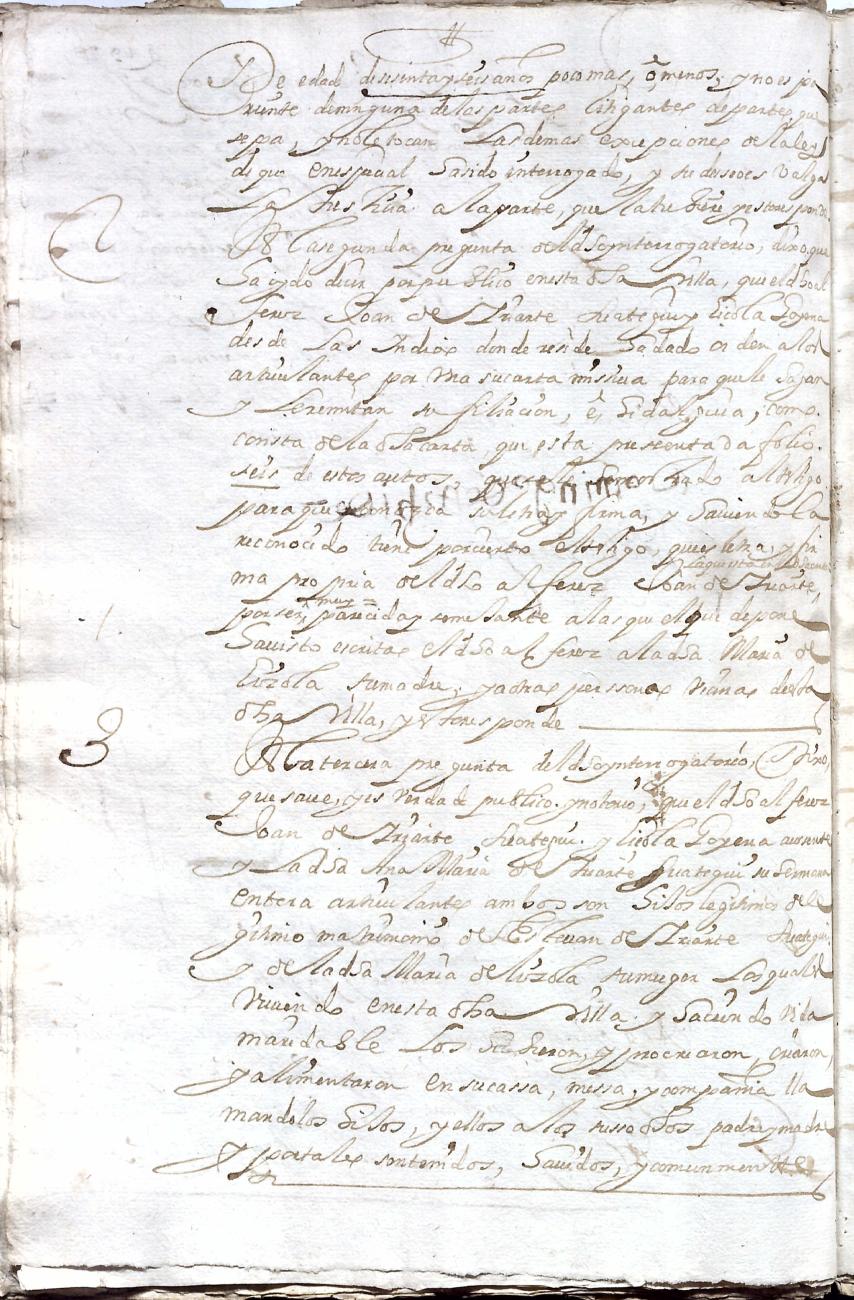 de edad de sesenta y seis años poco mas, ò menos, y no es pa
riente de ninguna de las partes litigantes de parte que
sepa, y no le tocan las demas excepciones de la ley
de que en especial ha sido interrogado, y su deseo es valga
la Justicia a la parte, que la tubiere y esto responde
2
A la segunda pregunta del dho ynterrogatorio, dixo, que
ha oydo decir por publico en esta dha Villa, que el dho al
ferez Joan de Yriarte y Licola Goyena
desde las Indias donde reside ha dado orden a los
articulantes por una su carta missiva para que le hagan
y le remitan su filiacion, è, hidalguia, como
consta de la dha carta, que esta presentada folio
seis de estos autos, que se le ha al testigo
para que reconozca su letra y firma, y haviendola
reconocido tiene por cierto el testigo, que es letra, y fir
ma propria del dho alferez Joan de Yriarte,
por ser muy parecida y semejante a las que el que depone
ha visto escritas el dho alferez a la dha Maria de
Licola su madre, y a otras perssonas vecinas desta
dha Villa, y esto responde
3
A la tercera pregunta del dho ynterrogatorio, Dixo,
que save, y es verdad publico y notorio, que el dho alferez
Joan de Yriarte y Licola Goyena aussente
y la dha Ana Maria de Yriarte su hermana
entera articulantes ambos son hijos legitimos de le
gitimo matrimonio de Estevan de Yriarte
y de la dha Maria de Licola su muger los quales
viviendo en esta dha Villa y haciendo vida
maridable los hubieron, y procrearon, criaron,
y alimentaron en su cassa, messa, y compania lla
mandolos hijos, y ellos a los susodhos padre y madre
y por tales son tenidos, havidos, y comunmente